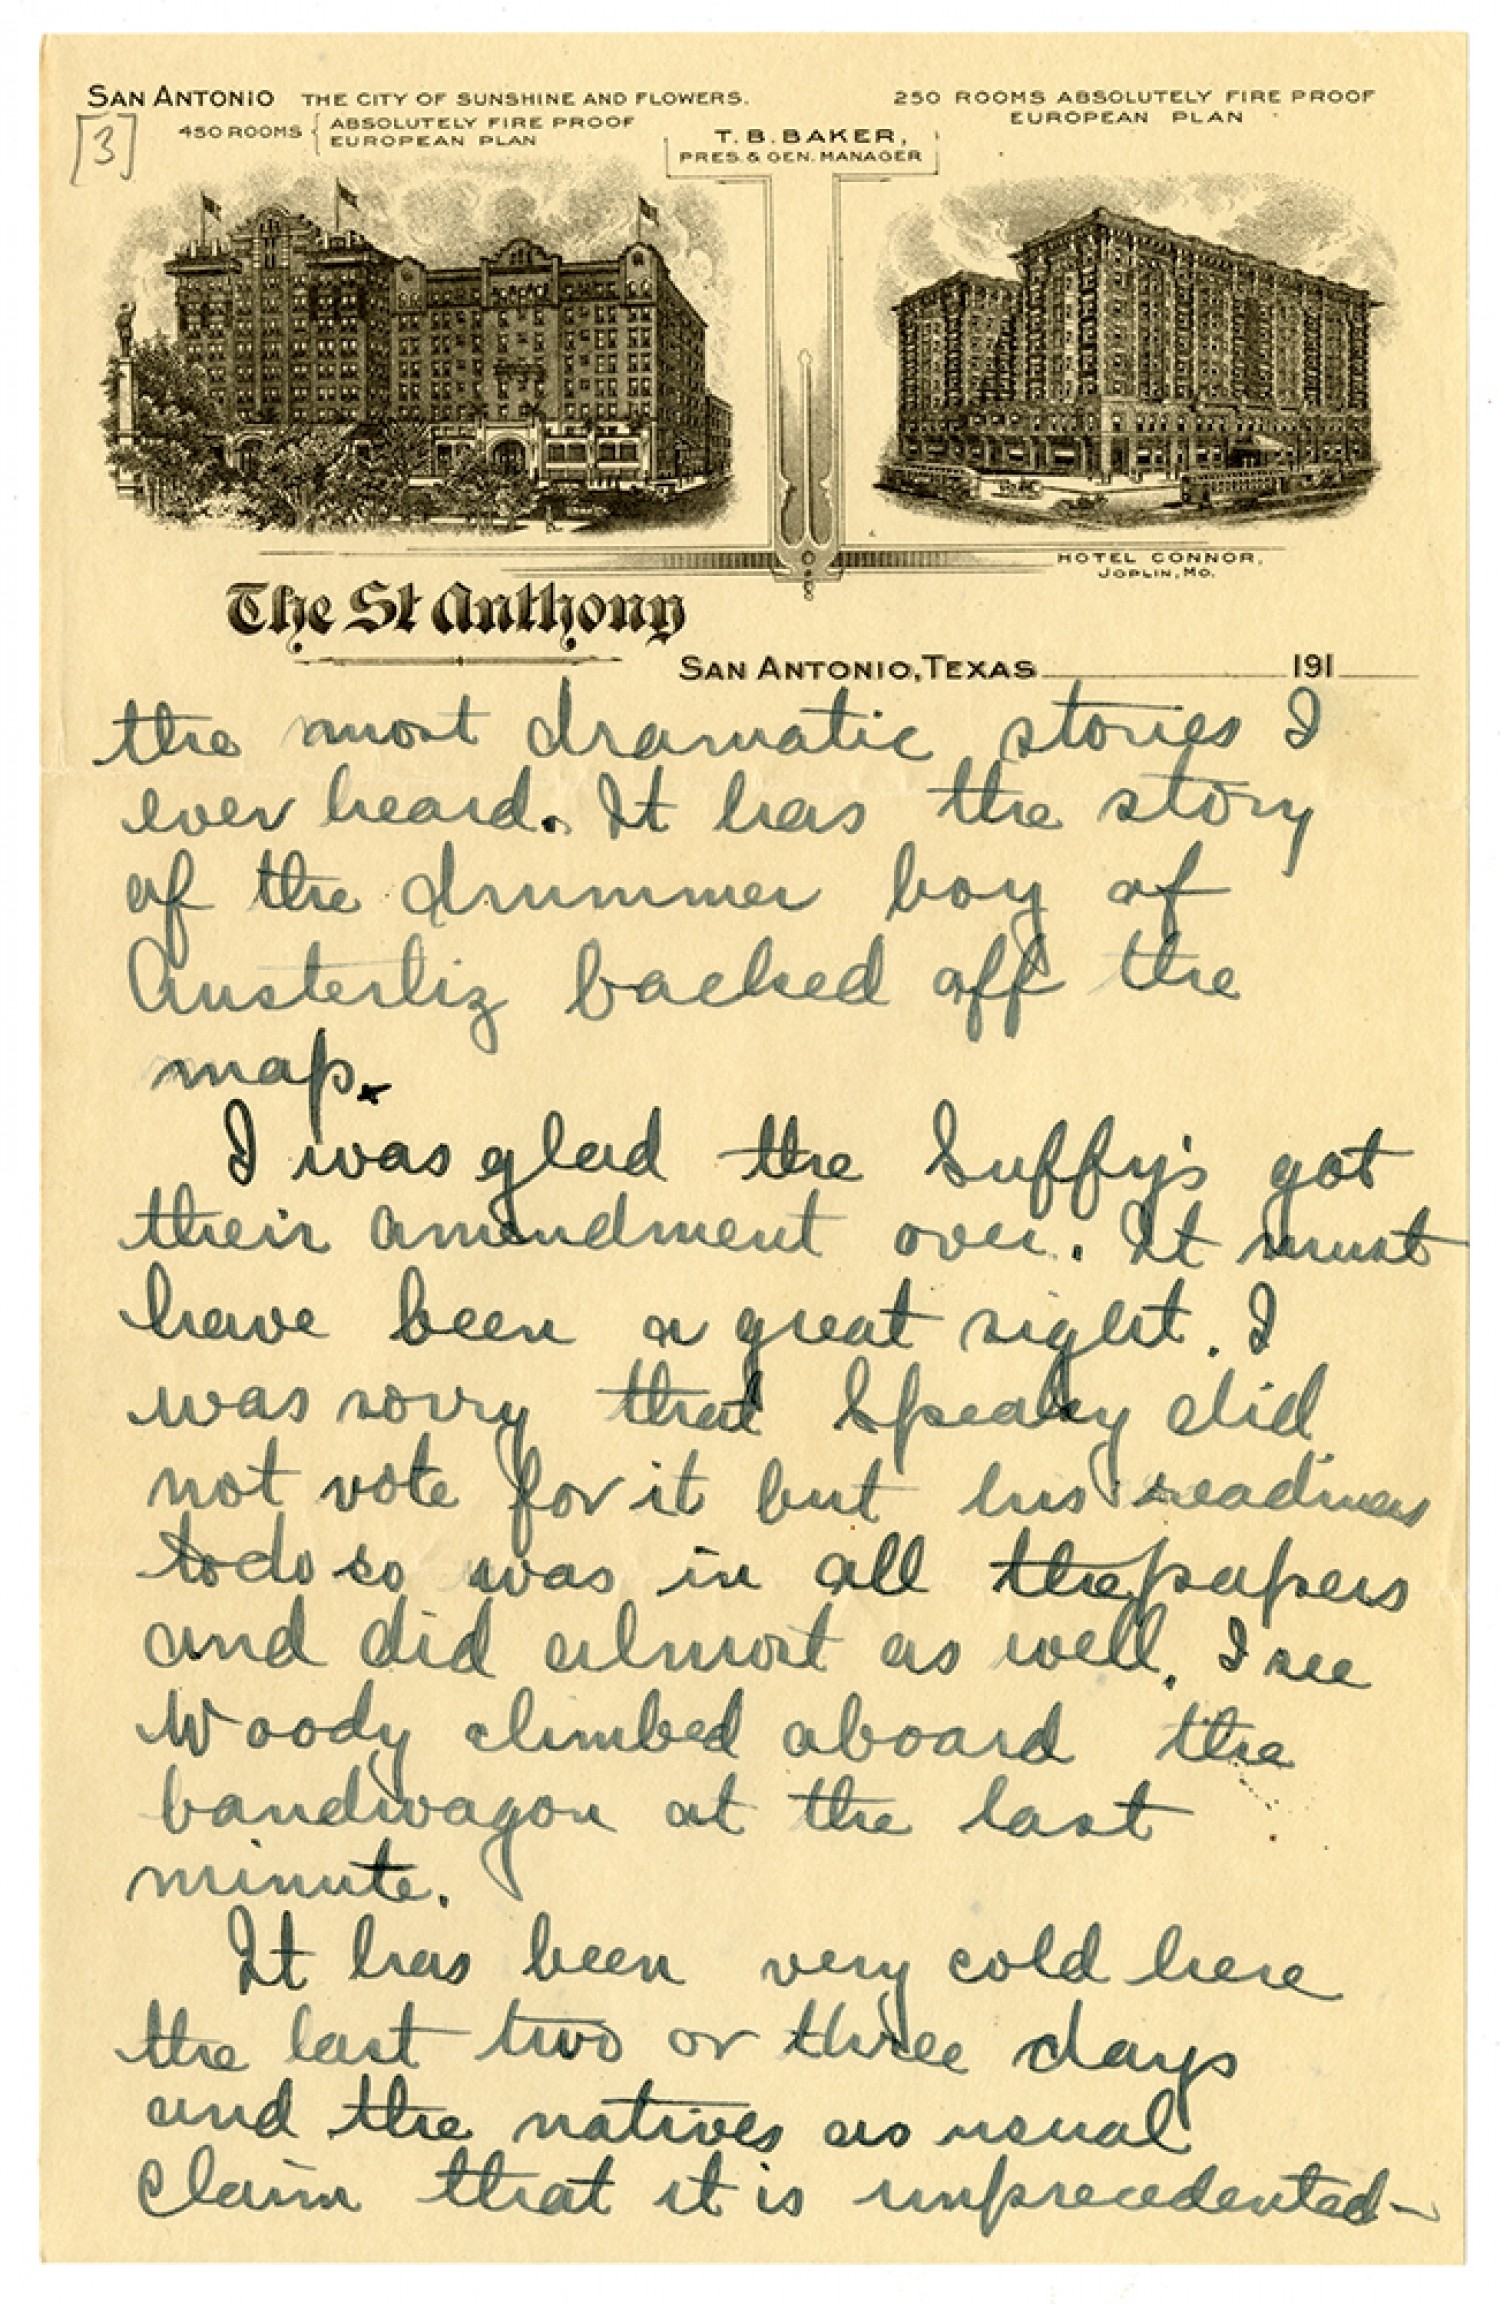 SAN ANTONIO THE CITY OF SUNSHINE AND FLOWERS.
450 ROOMS { ABSOLUTELY FIRE PROOF
EUROPEAN PLAN
[3]
T. B. BAKER,
PRES. & GEN. MANAGER
250 ROOMS ABSOLUTELY FIRE PROOF
EUROPEAN PLAN
HOTEL CONNOR,
JOPLIN, MO.
The St Anthony
SAN ANTONIO, TEXAS 191
the most dramatic stories I
ever heard. It has the story
of the drummer boy of
Austerliz backed off the
map.
I was glad the Suffy's got
their amendment over. It must
have been a great sight. I
was sorry that Speaky did
not vote for it but his readiness
to do so was in all the papers
and did almost as well. I see
Woody climbed aboard the
bandwagon at the last
minute.
It has been very cold here
the last two or three days
and the natives as usual
claim that it is unprecedented-